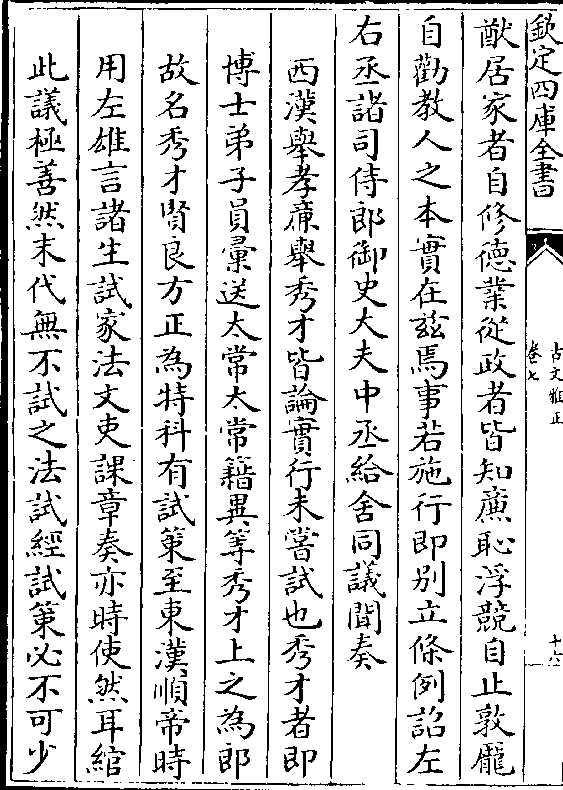 欽定四庫全書
古文雅正
卷七
十六
猷居家者自修德業從政者皆知廉恥浮競自止敦龎
自勸教人之本實在兹焉事若施行即别立條例詔左
右丞諸司侍郎御史大夫中丞給舍同議聞奏
西漢舉孝亷舉秀才皆論實行未嘗試也秀才者即
博士弟子員彚送太常太常籍異等秀才上之為郎
故名秀才賢良方正為特科有試策至東漢順帝時
用左雄言諸生試家法文吏課章奏亦時使然耳綰
此議極善然末代無不試之法試經試策必不可少